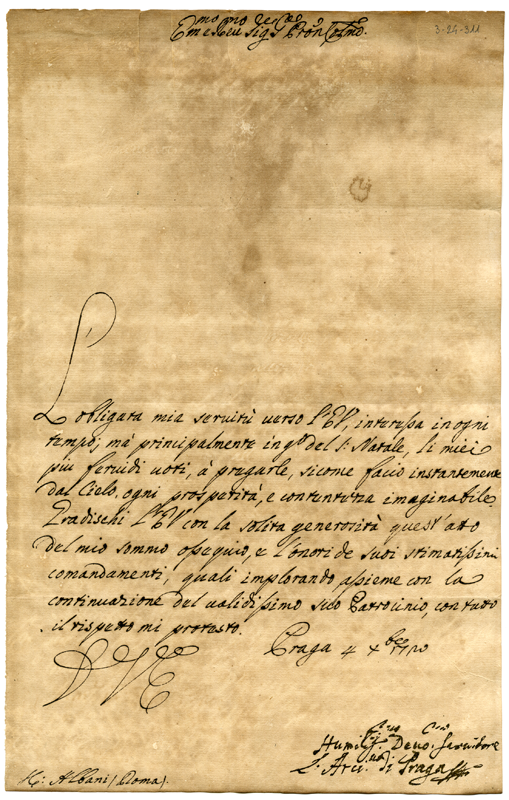 Em.mo e Re.mo Sig.r Pron Col.mo
3-24-311
L'obligata mia servitù verso l'EV, interessa in ogni
tempo; mà principalmente in q.to del S. Natale, li miei
più fervidi voti, a pregarle, sicome facio instantemente
dal Cielo, ogni prosperità, e contentezza imaginabile.
Gradischi l'EV con la solita generosità quest'atto
del mio sommo ossequio, e l'onori de suoi stimatissimi
comandamenti, quali implorando assieme con la
continuazione del validissimo suo Patrocinio, con tutto
il rispetto mi protesto.
Praga 4 Xbre
D V E
Humiliss.mo Devo.mo Servitore
L'Arci.vo di Praga
Albani (Roma).